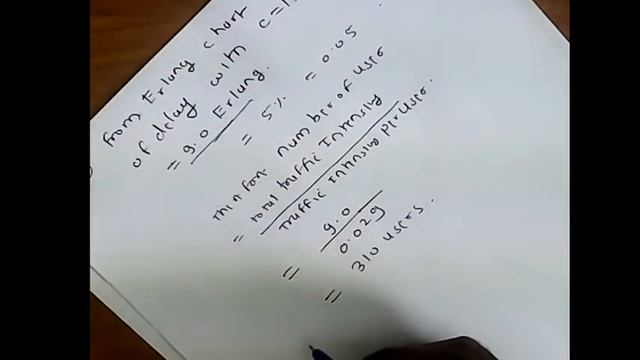 from Erlang chart
of delay with c=1
= 9.0 Erlang.
= 5% = 0.05
number of user
= total traffic Intensity
Traffic Intensity Per User.
= 9.0
0.029
= 310 users.